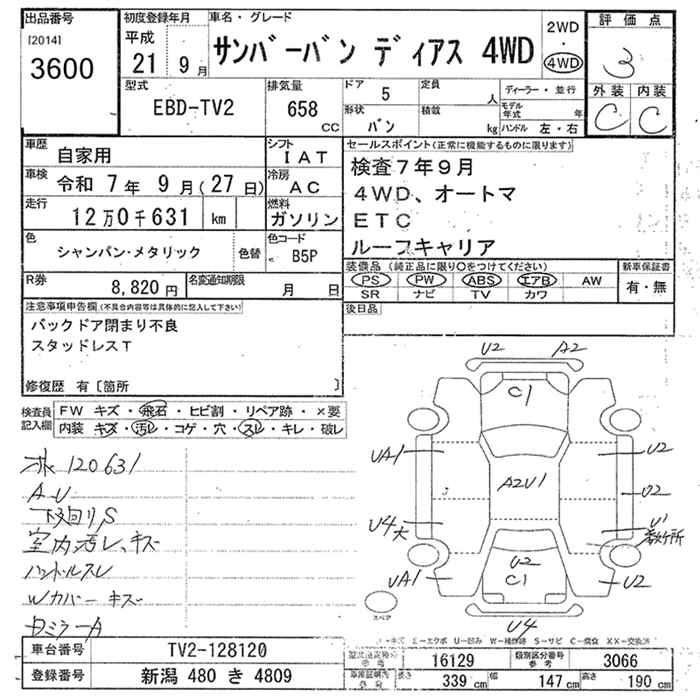 出品番号
[2014]
3600
初度登録年月
平成
21 9月
車名・グレード
サンバーバン ディアス 4WD
2WD
・
4WD
評価点
3
外装 内装
C C
型式
EBD-TV2
排気量
658
CC
ドア 5
定員
人
形状
バン
積載
kg
ディーラー・並行
モデル年式 年
ハンドル 左・右
車歴
自家用
シフト
IAT
車検 令和 7年 9月(27日)
冷房
AC
走行
12万0千631 km
燃料
ガソリン
色
シャンパン・メタリック
色替
色コード
B5P
R券
8,820円
名変通知期限
月 日
セールスポイント(正常に機能するものに限ります)
検査7年9月
4WD、オートマ
ETC
ルーフキャリア
装備品(純正品に限り○をつけてください)
PS PW ABS エアB AW
SR ナビ TV カワ
新車保証書
有・無
後日品
注意事項申告欄(不具合内容等は具体的に記入して下さい)
バックドア閉まり不良
スタッドレスT
修復歴 有〔箇所 〕
検査員記入欄
FW キズ・飛石・ヒビ割・リペア跡・×要
内装 キズ・汚レ・コゲ・穴・スレ・キレ・破レ
120631
A-U
下回りS
室内汚レ、キズ
ハンドルスレ
Wカバー キズ
Dミラー A
U2 A2
C1
UA1 U2
A2U1
U2
U4大 U1
UA1 U2
C1
U2
U4
スペア
車台番号
TV2-128120
登録番号
新潟 480 き 4809
型式指定番号
参考
16129
類別区分番号
参考
3066
長さ 339cm 幅 147cm 高さ 190cm